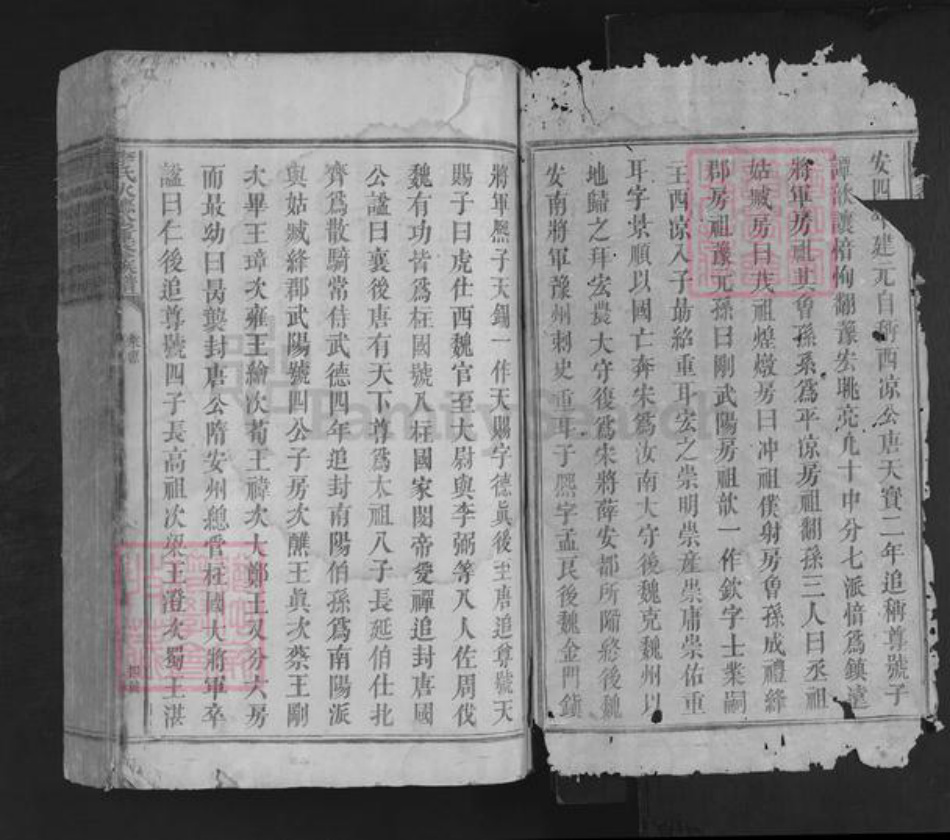 安四年建元自稱西凉公唐天寶二年追稱尊號子
譚歆讓愔恂翻豫宏眺亮九十中分七派愔爲鎮遠
將軍房祖其曾孫系爲平凉房祖翻孫三人曰丞祖
姑臧房曰茂祖煌燉房曰冲祖僕射房曾孫成禮絳
郡房祖豫元孫曰剛武陽房祖歆一作欽字士業嗣
王西凉入子勗紹重耳宏之崇明崇産崇庸崇佑重
耳字景順以國亡奔宋爲汝南大守後魏克魏州以
地歸之拜宏農大守復爲宋將薛安都所䧟終後魏
安南將軍豫州刺史重耳子熙字孟良後魏金門鎮
將軍熙子天錫一作天賜字德眞後主唐追尊號天
賜子曰虎仕西魏官至大尉與李弼等八人佐周伐
魏有功皆爲柱國號八柱國家閔帝受禪追封唐國
公謚曰襄後唐有天下尊爲太祖八子長延伯仕北
齊爲散騎常侍武德四年追封南陽伯孫爲南陽派
與姑臧絳郡武陽號四公子房次醮王眞次蔡王剛
次畢王璋次雍王繪次荀王禕次大鄭王又分六房
而最幼曰昺襲封唐公隋安州總管柱國大將軍卒
謚曰仁後追尊號四子長高祖次梁王澄次蜀王湛
FamilySearch